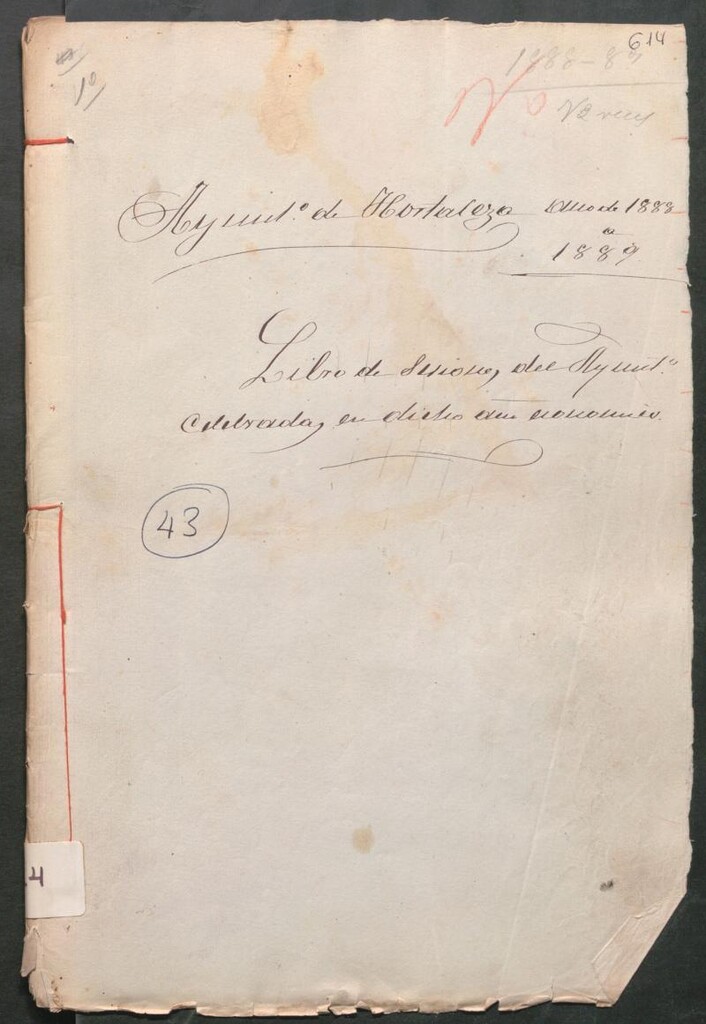 614
1888-89
Nº
1º
Ayuntº de Hortaleza Año de 1888
a
1889
Libro de Sesiones del Ayuntº
Celebradas en dicho año economico.
43
4